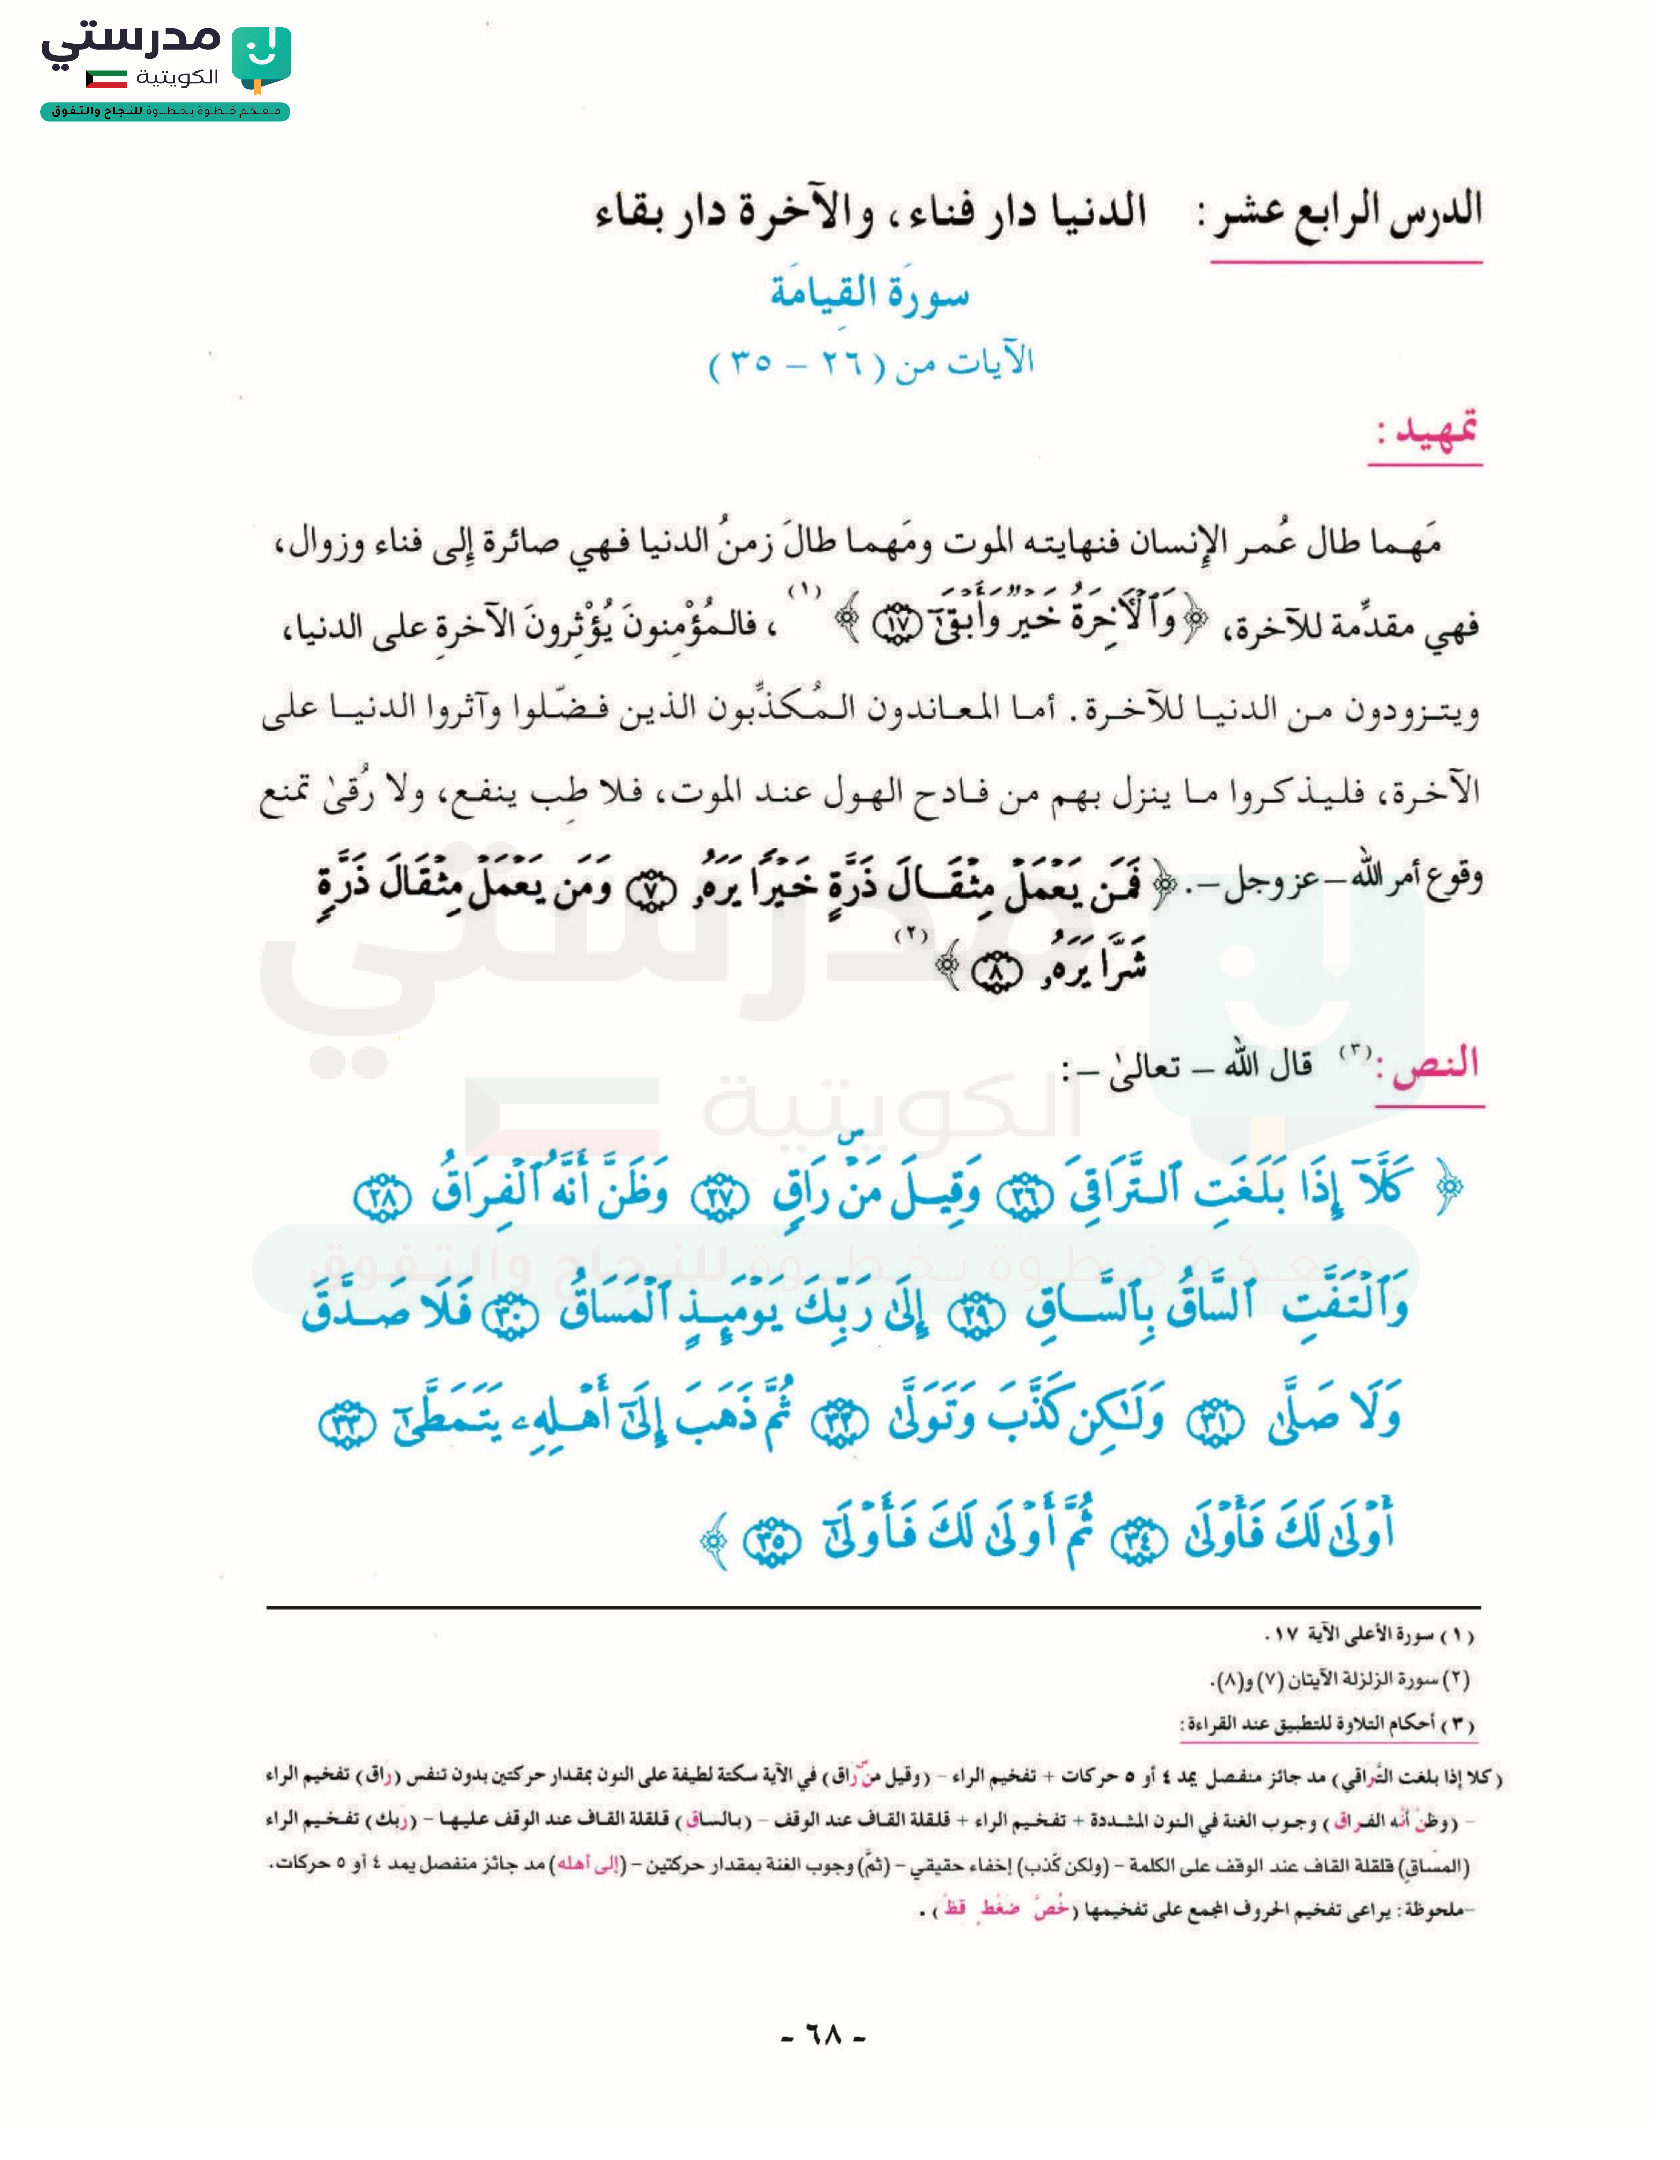 مدرستي
الكويتية
معكم خطوة بخطوة للنجاح والتفوق
الدرس الرابع عشر : الدنيا دار فناء، والآخرة دار بقاء
سورَة القِيامَة
الآيات من ( ٢٦ – ٣٥ )
تمهيد :
مَهما طال عُمر الإنسان فنهايته الموت ومَهما طالَ زمنُ الدنيا فهي صائرة إلى فناء وزوال،
فهي مقدِّمة للآخرة، ﴿ وَٱلْأَخِرَةُ خَيْرٌ وَأَبْقَىٰٓ ١٧ ﴾ (١) ، فالمُؤْمِنونَ يُؤْثِرونَ الآخرةِ على الدنيا،
ويتزودون من الدنيا للآخرة. أما المعاندون المُكذِّبون الذين فضّلوا وآثروا الدنيا على
الآخرة، فليذكروا ما ينزل بهم من فادح الهول عند الموت، فلا طِب ينفع، ولا رُقىٰ تمنع
وقوع أمر الله – عز وجل –. ﴿ فَمَن يَعْمَلْ مِثْقَالَ ذَرَّةٍ خَيْرًا يَرَهُۥ ٧ وَمَن يَعْمَلْ مِثْقَالَ ذَرَّةٍ
شَرًّا يَرَهُۥ ٨ ﴾ (٢)
النص : (٣) قال الله – تعالىٰ – :
﴿ كَلَّآ إِذَا بَلَغَتِ ٱلتَّرَاقِىَ ٢٦ وَقِيلَ مَنْ ۜ رَاقٍ ٢٧ وَظَنَّ أَنَّهُ ٱلْفِرَاقُ ٢٨
وَٱلْتَفَّتِ ٱلسَّاقُ بِٱلسَّاقِ ٢٩ إِلَىٰ رَبِّكَ يَوْمَئِذٍ ٱلْمَسَاقُ ٣٠ فَلَا صَدَّقَ
وَلَا صَلَّىٰ ٣١ وَلَٰكِن كَذَّبَ وَتَوَلَّىٰ ٣٢ ثُمَّ ذَهَبَ إِلَىٰٓ أَهْلِهِۦ يَتَمَطَّىٰٓ ٣٣
أَوْلَىٰ لَكَ فَأَوْلَىٰ ٣٤ ثُمَّ أَوْلَىٰ لَكَ فَأَوْلَىٰٓ ٣٥ ﴾
(١) سورة الأعلى الآية ١٧.
(٢) سورة الزلزلة الآيتان (٧) و(٨).
(٣) أحكام التلاوة للتطبيق عند القراءة:
(كلا إذا بلغت التَّراقي) مد جائز منفصل يمد ٤ أو ٥ حركات + تفخيم الراء – (وقيل منْ ۜ رَاق) في الآية سكتة لطيفة على النون بمقدار حركتين بدون تنفس (راق) تفخيم الراء
– (وظنّ أنَّه الفراق) وجوب الغنة في النون المشددة + تفخيم الراء + قلقلة القاف عند الوقف – (بالساق) قلقلة القاف عند الوقف عليها – (رَبك) تفخيم الراء
(المسَاقِ) قلقلة القاف عند الوقف على الكلمة – (ولكن كَّذب) إخفاء حقيقي – (ثمَّ) وجوب الغنة بمقدار حركتين – (إلى أهله) مد جائز منفصل يمد ٤ أو ٥ حركات.
–ملحوظة: يراعى تفخيم الحروف المجمع على تفخيمها (خُصَّ ضَغْطٍ قظْ) .
- ٦٨ -